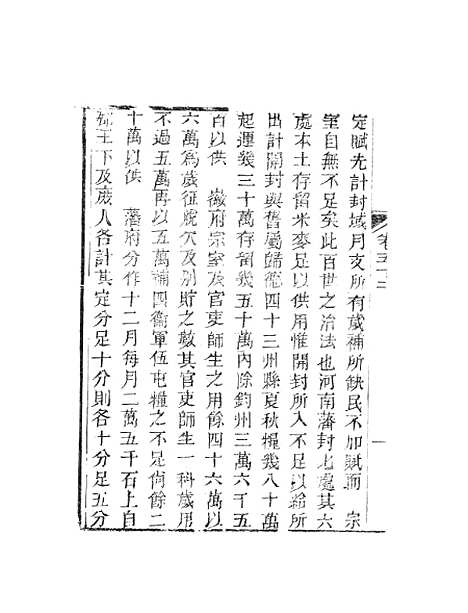 定賦先計封域月支所有歲補所缺民不加賦而　宗
室自無不足矣此百世之治法也河南藩封七處其六
處本土存留米麥足以供用惟開封所入不足以給所
出計開封與舊屬歸德四十三州縣夏秋糧幾八十萬
起運幾三十萬存留幾五十萬內除鈞州三萬六千五
百以供　徽府宗室及官吏師生之用餘四十六萬以
六萬為歲征虎穴及別貯之數其官吏師生一科歲用
不過五萬再以五萬補四衛軍伍屯糧之不足尚餘二
十萬以供　藩府分作十二月每月二萬五千石上自
郡王下及庶人各計其定分足十分則各十分足五分
卷五十二
一